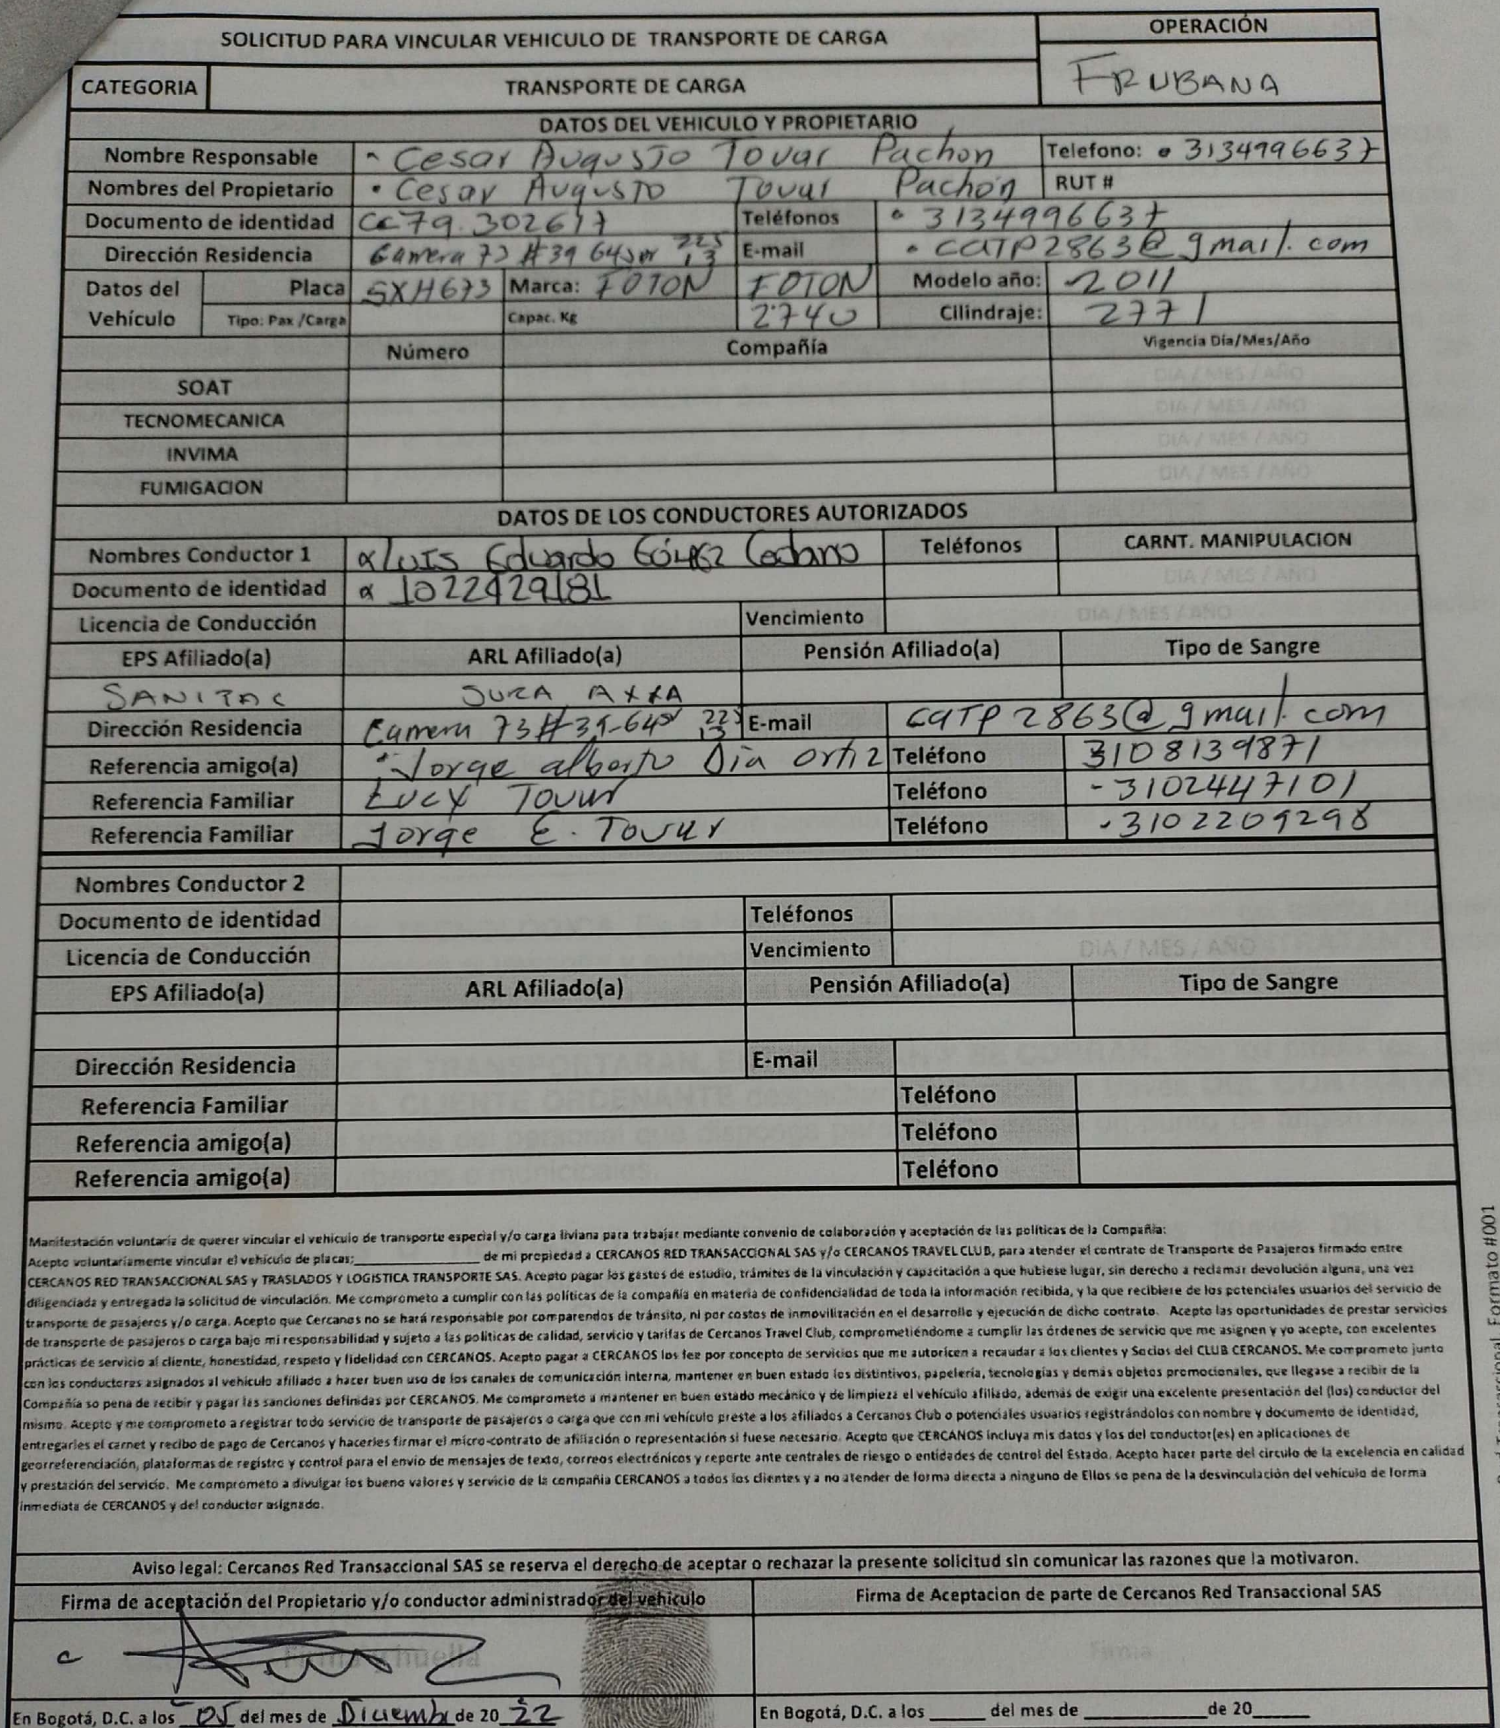 SOLICITUD PARA VINCULAR VEHICULO DE TRANSPORTE DE CARGA OPERACIÓN
CATEGORIA TRANSPORTE DE CARGA FRUBANA
DATOS DEL VEHICULO Y PROPIETARIO
Nombre Responsable Cesar Augusto Tovar Pachon Telefono: 3134996637
Nombres del Propietario Cesar Augusto Tovar Pachón RUT #
Documento de identidad CC 79.302617 Teléfonos 3134996637
Dirección Residencia Carrera 73 #39 64sur 225 13 E-mail CATP2863@gmail.com
Datos del Vehículo Placa SXH673 Marca: FOTON FOTON Modelo año: 2011
Tipo: Pax /Carga Capac. Kg 2740 Cilindraje: 2771
Número Compañía Vigencia Día/Mes/Año
SOAT DIA / MES / AÑO
TECNOMECANICA DIA / MES / AÑO
INVIMA DIA / MES / AÑO
FUMIGACION DIA / MES / AÑO
DATOS DE LOS CONDUCTORES AUTORIZADOS
Nombres Conductor 1 Luis Eduardo Gómez Teléfonos CARNT. MANIPULACION
Documento de identidad 1022429181 DIA / MES / AÑO
Licencia de Conducción Vencimiento DIA / MES / AÑO
EPS Afiliado(a) ARL Afiliado(a) Pensión Afiliado(a) Tipo de Sangre
SANITAS SURA AXXA
Dirección Residencia Carrera 73 #39-64sr 225 13 E-mail CATP2863@gmail.com
Referencia amigo(a) Jorge alberto Dia ortiz Teléfono 3108139871
Referencia Familiar Lucy Tovar Teléfono - 3102447101
Referencia Familiar Jorge E. Tovar Teléfono - 3102209298
Nombres Conductor 2
Documento de identidad Teléfonos
Licencia de Conducción Vencimiento DIA / MES / AÑO
EPS Afiliado(a) ARL Afiliado(a) Pensión Afiliado(a) Tipo de Sangre
Dirección Residencia E-mail
Referencia Familiar Teléfono
Referencia amigo(a) Teléfono
Referencia amigo(a) Teléfono
Manifestación voluntaria de querer vincular el vehiculo de transporte especial y/o carga liviana para trabajar mediante convenio de colaboración y aceptación de las políticas de la Compañia:
Acepto voluntariamente vincular el vehículo de placas:____________ de mi propiedad a CERCANOS RED TRANSACCIONAL SAS y/o CERCANOS TRAVEL CLUB, para atender el contrato de Transporte de Pasajeros firmado entre
CERCANOS RED TRANSACCIONAL SAS y TRASLADOS Y LOGISTICA TRANSPORTE SAS. Acepto pagar los gastos de estudio, trámites de la vinculación y capacitación a que hubiese lugar, sin derecho a reclamar devolución alguna, una vez
diligenciada y entregada la solicitud de vinculación. Me comprometo a cumplir con las políticas de la compañía en materia de confidencialidad de toda la información recibida, y la que recibiere de los potenciales usuarios del servicio de
transporte de pasajeros y/o carga. Acepto que Cercanos no se hará responsable por comparendos de tránsito, ni por costos de inmovilización en el desarrollo y ejecución de dicho contrato. Acepto las oportunidades de prestar servicios
de transporte de pasajeros o carga bajo mi responsabilidad y sujeto a las políticas de calidad, servicio y tarifas de Cercanos Travel Club, comprometiéndome a cumplir las órdenes de servicio que me asignen y yo acepte, con excelentes
prácticas de servicio al cliente, honestidad, respeto y fidelidad con CERCANOS. Acepto pagar a CERCANOS los fee por concepto de servicios que me autoricen a recaudar a los clientes y Socios del CLUB CERCANOS. Me comprometo junto
con los conductores asignados al vehículo afiliado a hacer buen uso de los canales de comunicación interna, mantener en buen estado los distintivos, papelería, tecnologías y demás objetos promocionales, que llegase a recibir de la
Compañía so pena de recibir y pagar las sanciones definidas por CERCANOS. Me comprometo a mantener en buen estado mecánico y de limpieza el vehículo afiliado, además de exigir una excelente presentación del (los) conductor del
mismo. Acepto y me comprometo a registrar todo servicio de transporte de pasajeros o carga que con mi vehículo preste a los afiliados a Cercanos Club o potenciales usuarios registrándolos con nombre y documento de identidad,
entregarles el carnet y recibo de pago de Cercanos y hacerles firmar el micro-contrato de afiliación o representación si fuese necesario. Acepto que CERCANOS incluya mis datos y los del conductor(es) en aplicaciones de
georreferenciación, plataformas de registro y control para el envío de mensajes de texto, correos electrónicos y reporte ante centrales de riesgo o entidades de control del Estado. Acepto hacer parte del circulo de la excelencia en calidad
y prestación del servicio. Me comprometo a divulgar los bueno valores y servicio de la compañia CERCANOS a todos los clientes y a no atender de forma directa a ninguno de Ellos so pena de la desvinculación del vehículo de forma
inmediata de CERCANOS y del conductor asignado.
Aviso legal: Cercanos Red Transaccional SAS se reserva el derecho de aceptar o rechazar la presente solicitud sin comunicar las razones que la motivaron.
Firma de aceptación del Propietario y/o conductor administrador del vehículo Firma de Aceptacion de parte de Cercanos Red Transaccional SAS
Firma huella Firma
En Bogotá, D.C. a los 05 del mes de Diciembr de 20 22 En Bogotá, D.C. a los _____ del mes de ___________ de 20_____
Transaccional Formato #001